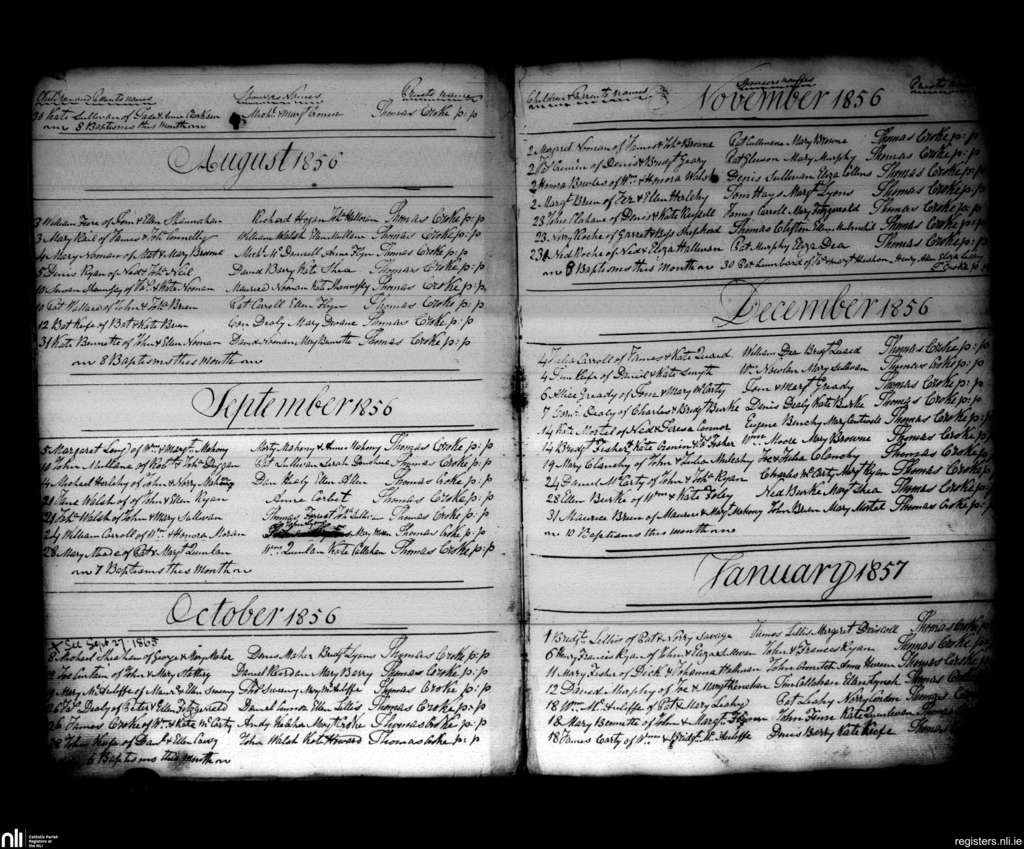 Children and Parents names Sponsors Names Priests names
Kate Sullivan of Mich. & Mary Thomas Croke p: p
8 Baptisms this Month
August 1856
3 William of & Ellen Shanahan Richard Hogan Joh. Halloran Thomas Croke p: p
3 Mary Keil of James & Joh. Connelly William Walsh Ellen Mullane Thomas Croke p: p
4 Mary Noonan of Mat & Mary Browne Mich. Mc Donnell Anne Flyn Thomas Croke p: p
5 Denis Ryan of Ned & Joh. Neil David Barry Kate Shea Thomas Croke p: p
10 Susan of & Kate Noonan Maurice Noonan Kate Thomas Croke p: p
10 Pat Wallace of John & Joh. Breen Pat Caroll Ellen Flyn Thomas Croke p: p
12 Bat Keefe of Bat & Kate Breen Con Dealy Mary Dwane Thomas Croke p: p
31 Kate Bennette of John & Ellen Noonan David Noonan Mary Bennette Thomas Croke p: p
8 Baptisms this Month
September 1856
5 Margaret Long of Wm. & Margt. Mahony Morty Mahony & Anne Mahony Thomas Croke p: p
10 John Mullane of Robt. & Joh. Duggan Pat Sullivan Sarah Donohue Thomas Croke p: p
4 Michael Herlehy of John & Norry Mahony Dan Healy Ellen Allen Thomas Croke p: p
21 Jane Walsh of of John & Ellen Ryan Anne Corbet Thomas Croke p: p
21 Joh. Walsh of John & Mary Sullivan Thomas Forrest Joh. Thomas Croke p: p
24 William Carroll of Wm. & Honora Moran Mary Thomas Croke p: p
28 Mary Meade of Pat & Margt. Quinlan Wm. Quinlan Kate Callahan Thomas Croke p: p
7 Baptisms this Month
October 1856
X See Sept. 27, 1865
8 Michael Sheehan of George & Mary Maher Denis Maher Bridgt. Lyons Thomas Croke p: p
Joe Linehan of John & Mary Daniel Reardon Mary Berry Thomas Croke p: p
Mary McAuliffe of & Ellen Sweeny Thos. Sweeny Mary McAuliffe Thomas Croke p: p
26 Dealy of Peter & Ellen Fitzgerald Daniel Connor Ellen Lillis Thomas Croke p: p
26 James Croke of Wm. & Kate McCarty Andy Mary Croke Thomas Croke p: p
28 John Keefe of Danl. & Ellen Casey John Walsh Kate Howard Thomas Croke p: p
6 Baptisms this Month
Children & Parents names Sponsors names Priests
November 1856
2 Margret Noonan of James & Joh. Browne Pat Cullinane Mary Browne Thomas Croke p: p
2 of Denis & Bridgt Geary Pat Gleeson Mary Murphy Thomas Croke p: p
2 Honora Bowles of Wm. & Honora Walsh Denis Sullivan Eliza Collins Thomas Croke p: p
2 Margt. Breen of & Ellen Herlehy Tom Hays Margt. Lyons Thomas Croke p: p
28 John Clahane of Denis & Kate Russell James Carroll Mary Fitzgerald Thomas Croke p: p
23 Norry Roche of Garret & Bess Shephard Thomas Clifton Ellen Thomas Croke p: p
23 Ned Roche of Ned & Eliza Hallinan Pat Murphy Eliza Dea Thomas Croke p: p
8 Baptisms this Month 30 Pat Lumbard of & Margt Henry Eliza
Croke p: p
December 1856
4 Julia Carroll of James & Kate Quaid William Dea Bridgt Quaid Thomas Croke p: p
4 Tim Keefe of Daniel & Kate Smyth Wm. Nowlan Mary Sullivan Thomas Croke p: p
6 Alice Gready of Tom & Mary McCarty Tom & Margt. Gready Thomas Croke p: p
7 Dealy of Charles & Bridgt Burke Denis Dealy Kate Burke Thomas Croke p: p
14 of Ned & Teresa Connor Eugene Mary Thomas Croke p: p
14 Bridgt Fisher, Kate Cronin & Fisher Wm. Meade Mary Browne Thomas Croke p: p
19 Mary Clanchy of John & Julia Joe & Julia Clanchy Thomas Croke p: p
24 Daniel McCarty of John & Joh. Ryan Charles McCarty Mary Ryan Thomas Croke p: p
28 Ellen Burke of Wm. & Kate Foley Ned Burke Mary Shea Thomas Croke p: p
31 Maurice Breen of Maurice & Margt. Mahony John Breen Mary Thomas Croke p: p
10 Baptisms this month
January 1857
1 Bridgt. Lillis of Pat & Norry Savage James Lillis Margret Driscoll Thomas Croke
6 Henry Francis Ryan of John & Eliza Sullivan John & Frances Ryan Thomas Croke
11 Mary Fisher of Dick & Johanna Hallinan John Anne Thomas Croke
12 Denis Murphy of Joe & Mary Tim Callahan Ellen Lynch Thomas Croke
18 Wm. McAuliffe of Pat & Mary Leahy Pat Leahy Norry Thomas
18 Mary Bennette of John & Margt. Flynn John Kate Quinlivan Thomas
18 James Carty of Wm. & Bridgt. McAuliffe Denis Berry Kate Keefe Thomas
nli Catholic Parish
Registers at
the NLI
registers.nli.ie